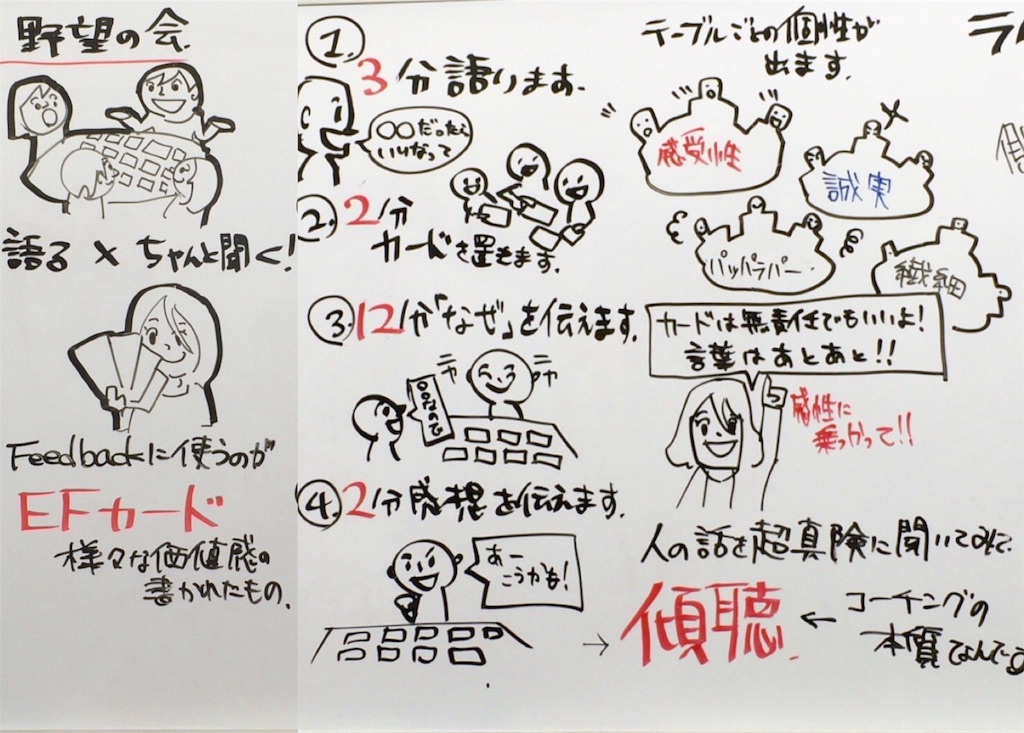 野望の会
語る × ちゃんと聞く!
Feedbackに使うのが
EFカード
様々な価値感の
書かれたもの.
① 3分語ります.
○○だったら
いいなって
② 2分
カードを置きます.
③ 12分「なぜ」を伝えます.
○○なので
ニヤ ニヤ
④ 2分感想を伝えます.
あー
こうかも!
テーブルごとの個性が
出ます.
感受性
誠実
パッパラパー
繊細
カードは無責任でもいいよ!
言葉はあとあと!!
感性に
乗っかって!!
人の話を超真険に聞いてみて.
→ 傾聴. ← コーチングの
本質なんです